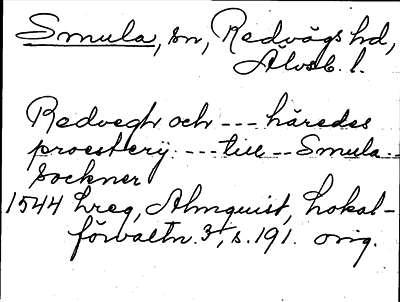 Smula, sn, Redvägs hd,
Älvsb. l.
Redvegh och --- häredes
proesterij. --- till -- Smula --
sockner
1544 Lreg, Almquist, Lokal-
förvaltn. 3, s. 191. orig.